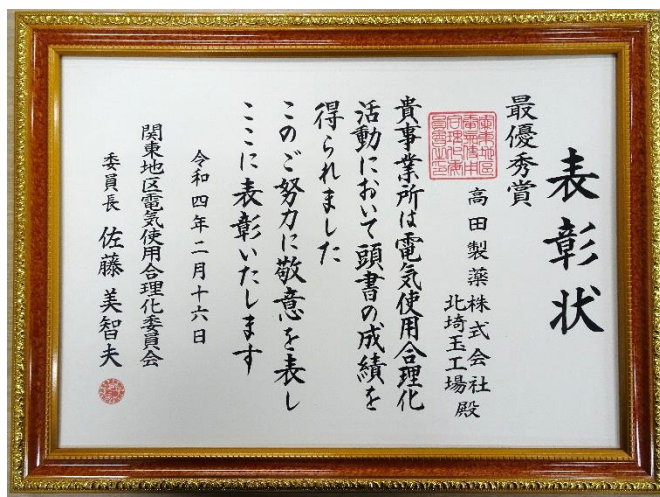 表彰状
最優秀賞
高田製薬株式会社
北埼玉工場殿
貴事業所は電気使用合理化
活動において頭書の成績を
得られました
このご努力に敬意を表し
ここに表彰いたします
令和四年二月十六日
関東地区電気使用合理化委員会
委員長 佐藤美智夫